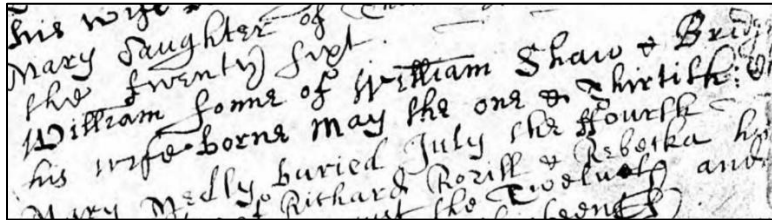 his wife
Mary Daughter of
the twenty sixt
William sonne of William Shaw & Bridg
his wife borne May the one & thirtith
Mary Medly buried July the ffourth
of Richard Rozill & Rebecka his
the Twelueth and